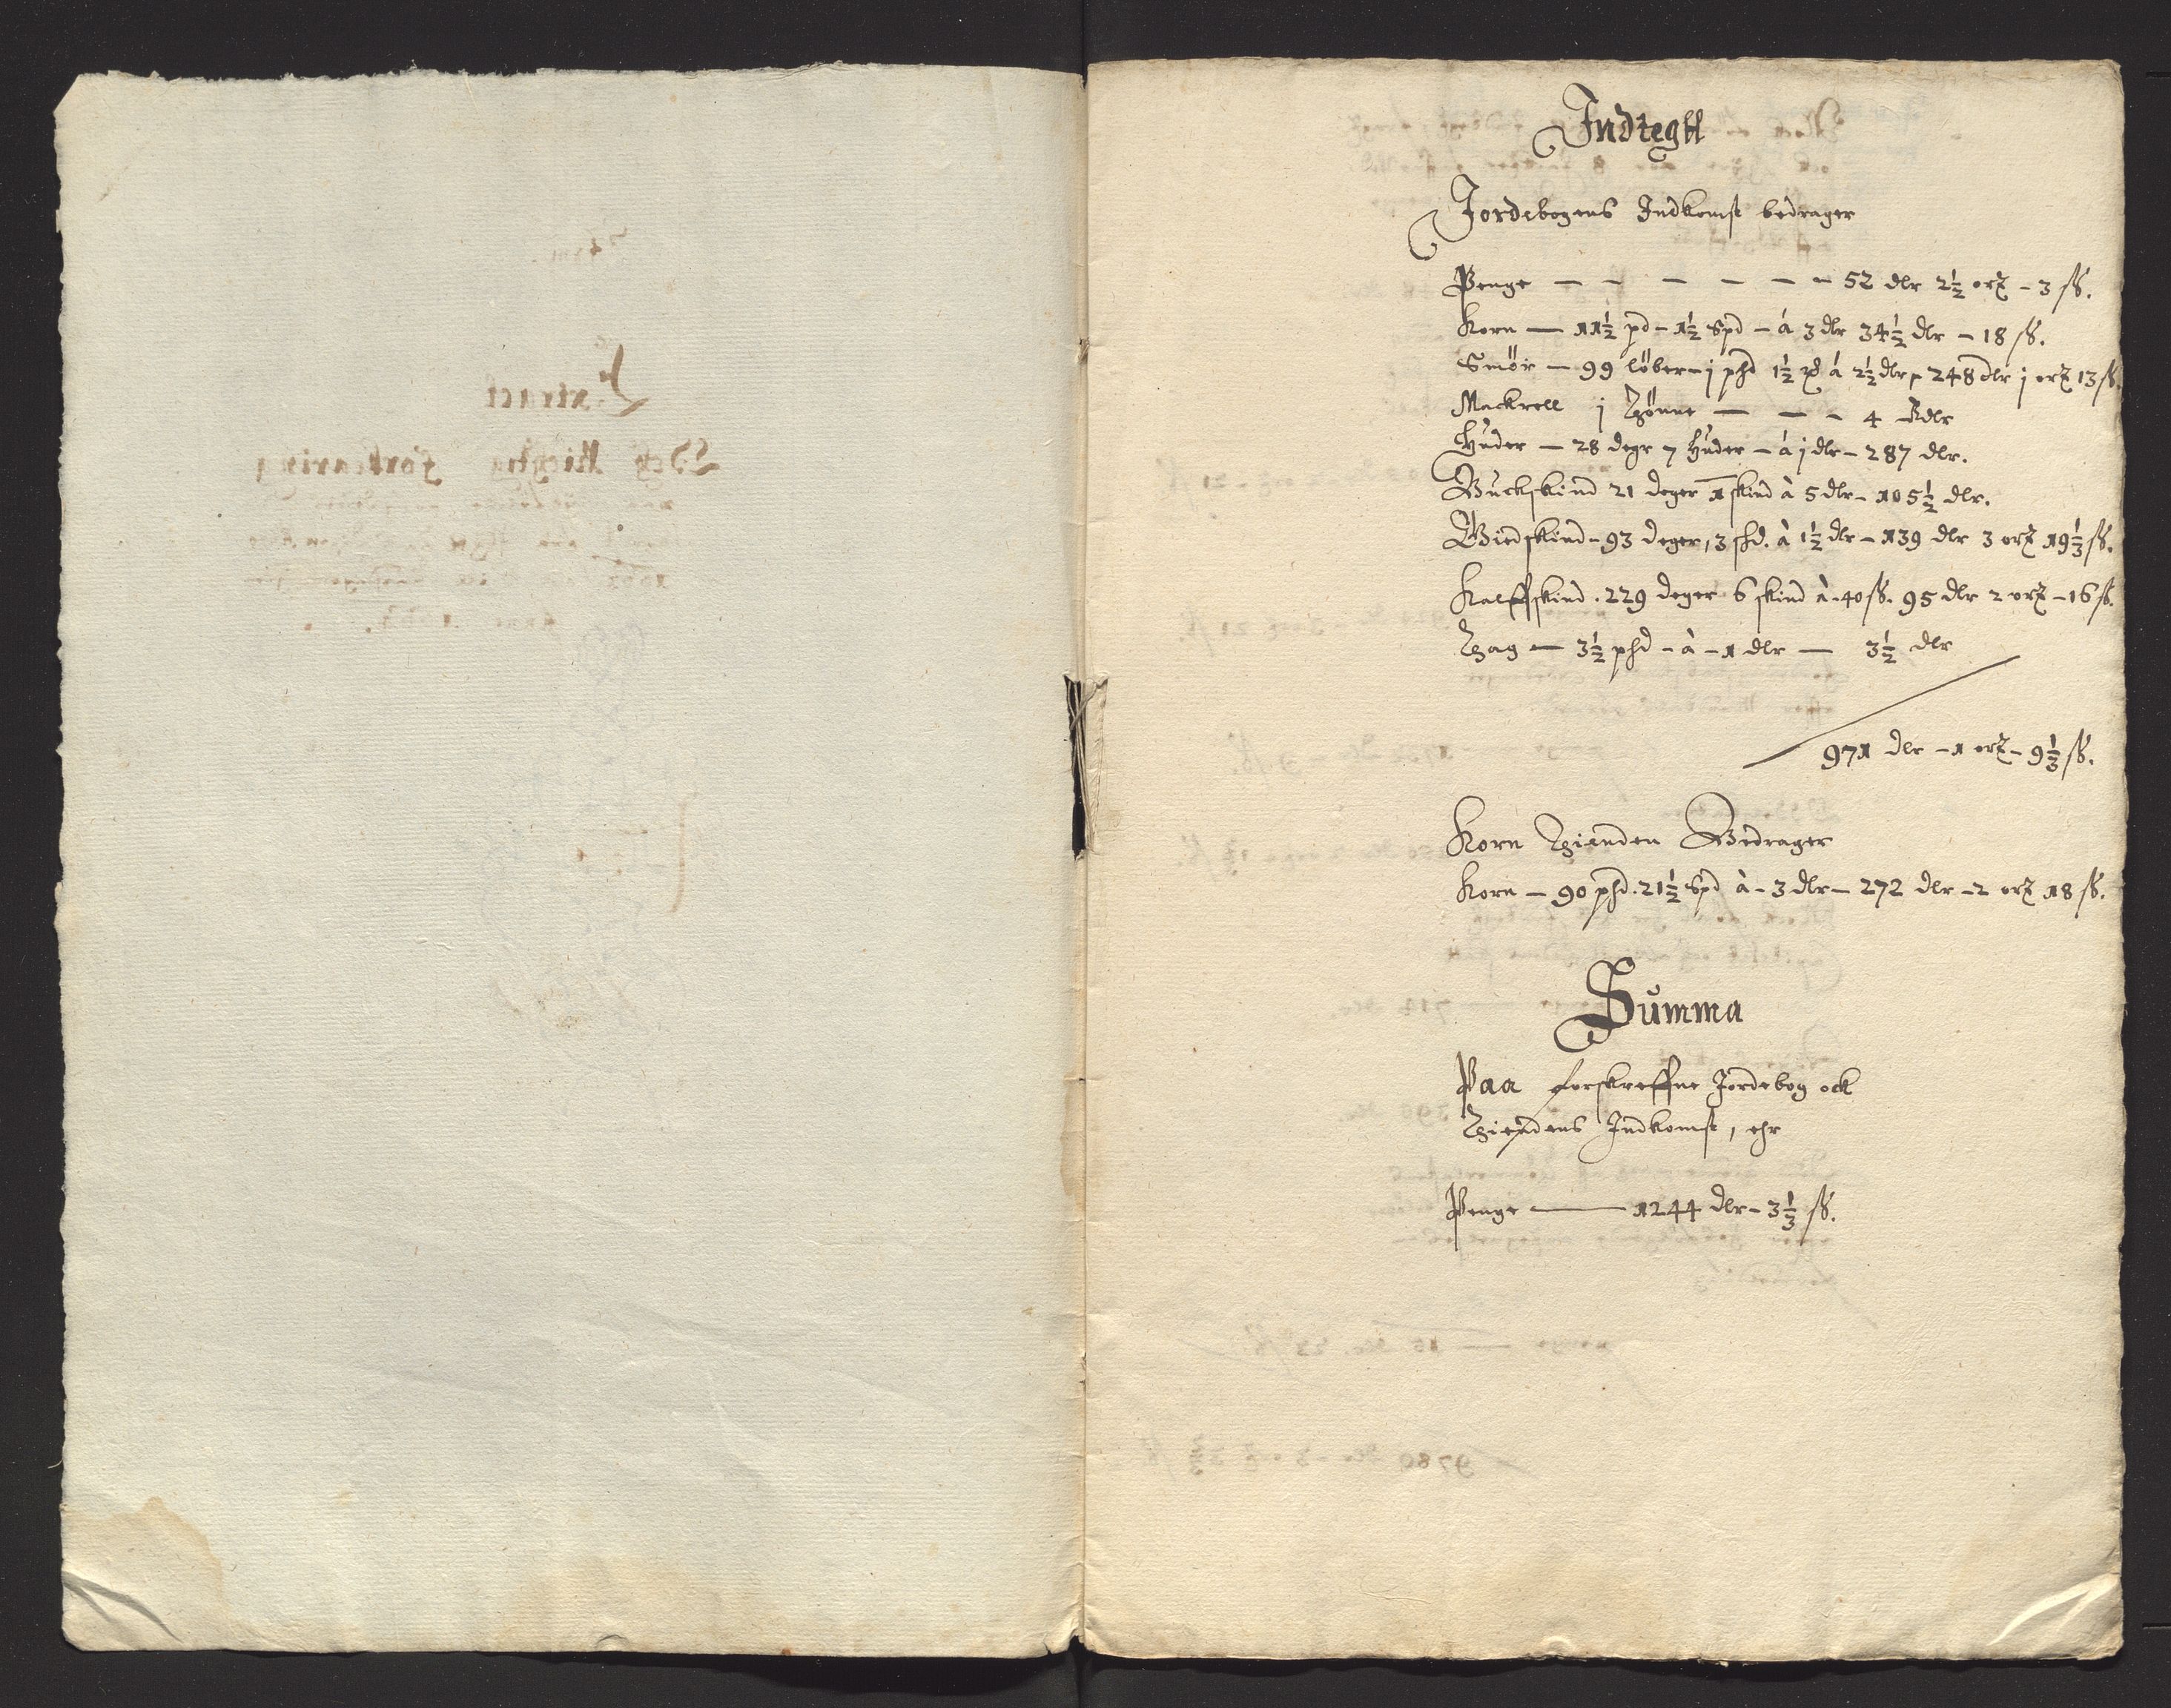 Indtegtt
Jordebogens Indkomst bedrager
Penge — — — — — — 52 dlr 2½ ort – 3 ß.
Korn — 11½ pd – 1½ Spd – á 3 dlr 34½ dlr – 18 ß.
Smör — 99 löber – j phd 1½ á 2½ dlr, 248 dlr j ort 13 ß
Mackrell j Thönne — — – 4 Rdlr
Huder — 28 degr 7 huder – á j dlr – 287 dlr.
Buckskind 21 deger 1 skind à 5 dlr – 105½ dlr.
Giedskind – 93 deger, 3 skd. à 1½ dlr – 139 dlr 3 ort 19⅓ ß.
Kalffskind . 229 deger 6 skind à – 40 ß. 95 dlr 2 ort – 16 ß.
Thag — 3½ phd – à – 1 dlr — 3½ dlr
971 dlr – 1 ort – 9⅓ ß.
Korn Thienden Bedrager
Korn — 90 phd. 21½ Spd à – 3 dlr — 272 dlr – 2 ort 18 ß.
Summa
Paa forskreffne Jordebog ock
Thiendens Indkomst, ehr
Penge — 1244 dlr – 3⅓ ß.